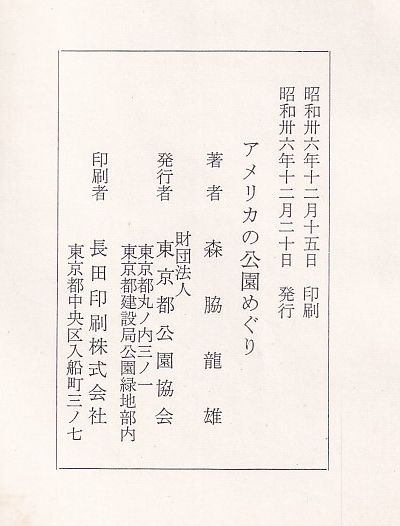 昭和卅六年十二月十五日 印刷
昭和卅六年十二月二十日 発行
アメリカの公園めぐり
著者 森脇龍雄
発行者 財団法人 東京都公園協会
東京都丸ノ内三ノ一
東京都建設局公園緑地部内
印刷者 長田印刷株式会社
東京都中央区入船町三ノ七